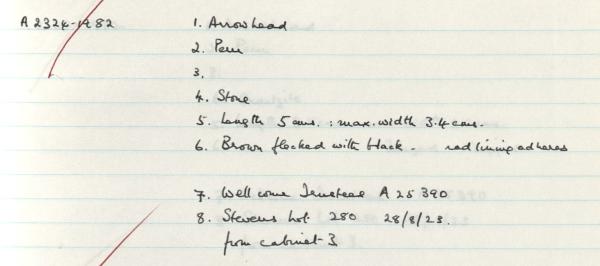 A 2324-1982
1. Arrowhead
2. Peru
3.
4. Stone
5. Length 5 cms. : max. width 3.4 cms.
6. Brown flecked with black - red lining adheres
7. Wellcome Trustees A 25390
8. Stevens Lot 280 28/8/23.
from cabinet 3